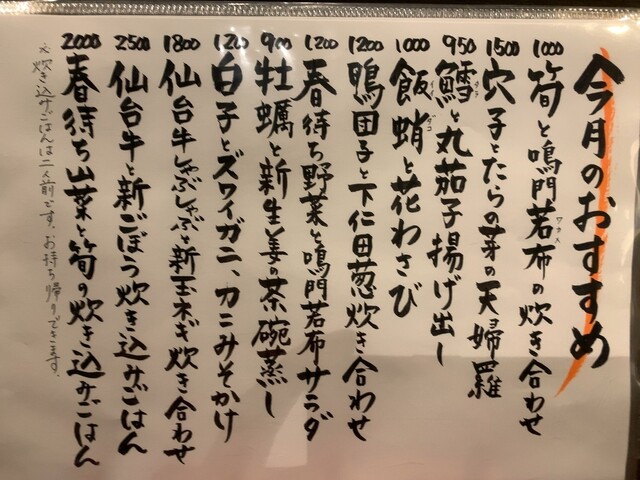 今月のおすすめ
1000 筍と鳴門若布の炊き合わせ
ワカメ
1500 穴子とたらの芽の天婦羅
950 鱈と丸茄子揚げ出し
タラ
1000 飯蛸と花わさび
イイダコ
1200 鴨団子と下仁田葱炊き合わせ
1200 春待ち野菜と鳴門若布サラダ
900 牡蠣と新生姜の茶碗蒸し
1200 白子とズワイガニ、カニみそかけ
1800 仙台牛しゃぶしゃぶと新玉ネギ炊き合わせ
2500 仙台牛と新ごぼう炊き込みごはん
2000 春待ち山菜と筍の炊き込みごはん
※炊き込みごはんは二人前です。お持ち帰りできます。